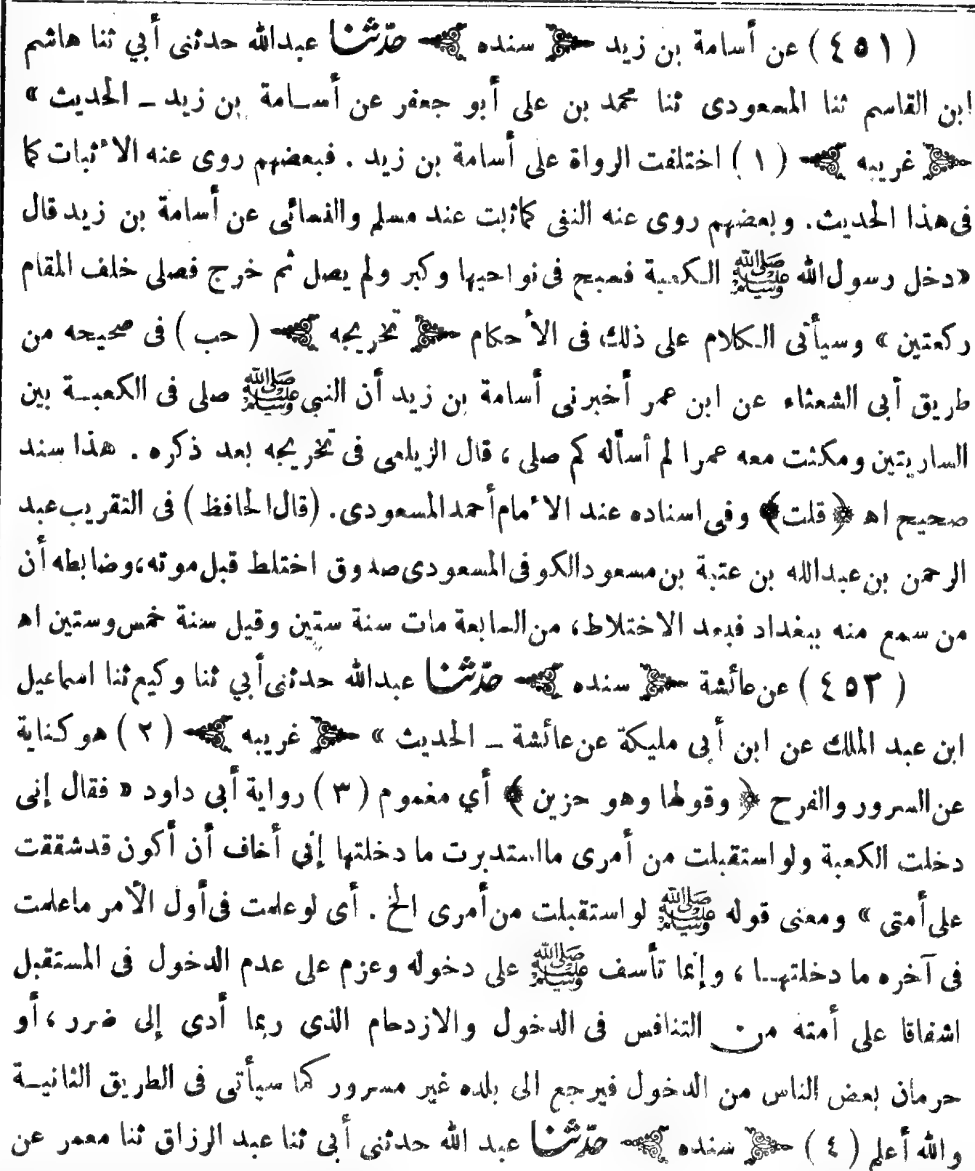 (٤٥١) عن أسامة بن زيد ﴿ سنده ﴾ حدّثنا عبدالله حدثنى أبي ثنا هاشم
ابن القاسم ثنا المسعودى ثنا محمد بن على أبو جعفر عن أسامة بن زيد ــ الحديث »
﴿ غريبه ﴾ (١) اختلفت الرواة على أسامة بن زيد . فبعضهم روى عنه الاثبات كما
فى هذا الحديث. وبعضهم روى عنه النفى كما ثبت عند مسلم والنسائى عن أسامة بن زيد قال
«دخل رسول الله ﷺ الكعبة فسبح فى نواحيها وكبر ولم يصل ثم خرج فصلى خلف المقام
ركعتين » وسيأتى الكلام على ذلك فى الأحكام ﴿ تخريجه ﴾ ( حب ) فى صحيحه من
طريق أبى الشعثاء عن ابن عمر أخبرنى أسامة بن زيد أن النبى ﷺ صلى فى الكعبة بين
الساريتين ومكثت معه عمرا لم أسأله كم صلى ، قال الزيلعى فى تخريجه بعد ذكره . هذا سند
صحيح اه ﴿ قلت ﴾ وفى اسناده عند الامام أحمد المسعودى. (قال الحافظ ) فى التقريب عبد
الرحمن بن عبدالله بن عتبة بن مسعود الكوفى المسعودى صدوق اختلط قبل موته ، وضابطه أن
من سمع منه ببغداد فبعد الاختلاط، من السابعة مات سنة ستين وقيل سنة خمس وستين اه
(٤٥٢) عن عائشة ﴿ سنده ﴾ حدّثنا عبدالله حدثنى أبي ثنا وكيع ثنا اسماعيل
ابن عبد الملك عن ابن أبى مليكة عن عائشة ــ الحديث » ﴿ غريبه ﴾ (٢) هو كناية
عن السرور والفرح ﴿ وقولها وهو حزين ﴾ أي مغموم (٣) رواية أبى داود « فقال إنى
دخلت الكعبة ولو استقبلت من أمرى ما استدبرت ما دخلتها إنى أخاف أن أكون قد شققت
على أمتى » ومعنى قوله ﷺ لو استقبلت من أمرى الخ . أى لو علمت فى أول الأمر ما علمت
فى آخره ما دخلتها ، وإنما تأسف ﷺ على دخوله وعزم على عدم الدخول فى المستقبل
اشفاقا على أمته من التنافس فى الدخول والازدحام الذى ربما أدى إلى ضرر ، أو
حرمان بعض الناس من الدخول فيرجع الى بلده غير مسرور كما سيأتى فى الطريق الثانية
والله أعلم (٤) ﴿ سنده ﴾ حدّثنا عبد الله حدثنى أبى ثنا عبد الرزاق ثنا معمر عن